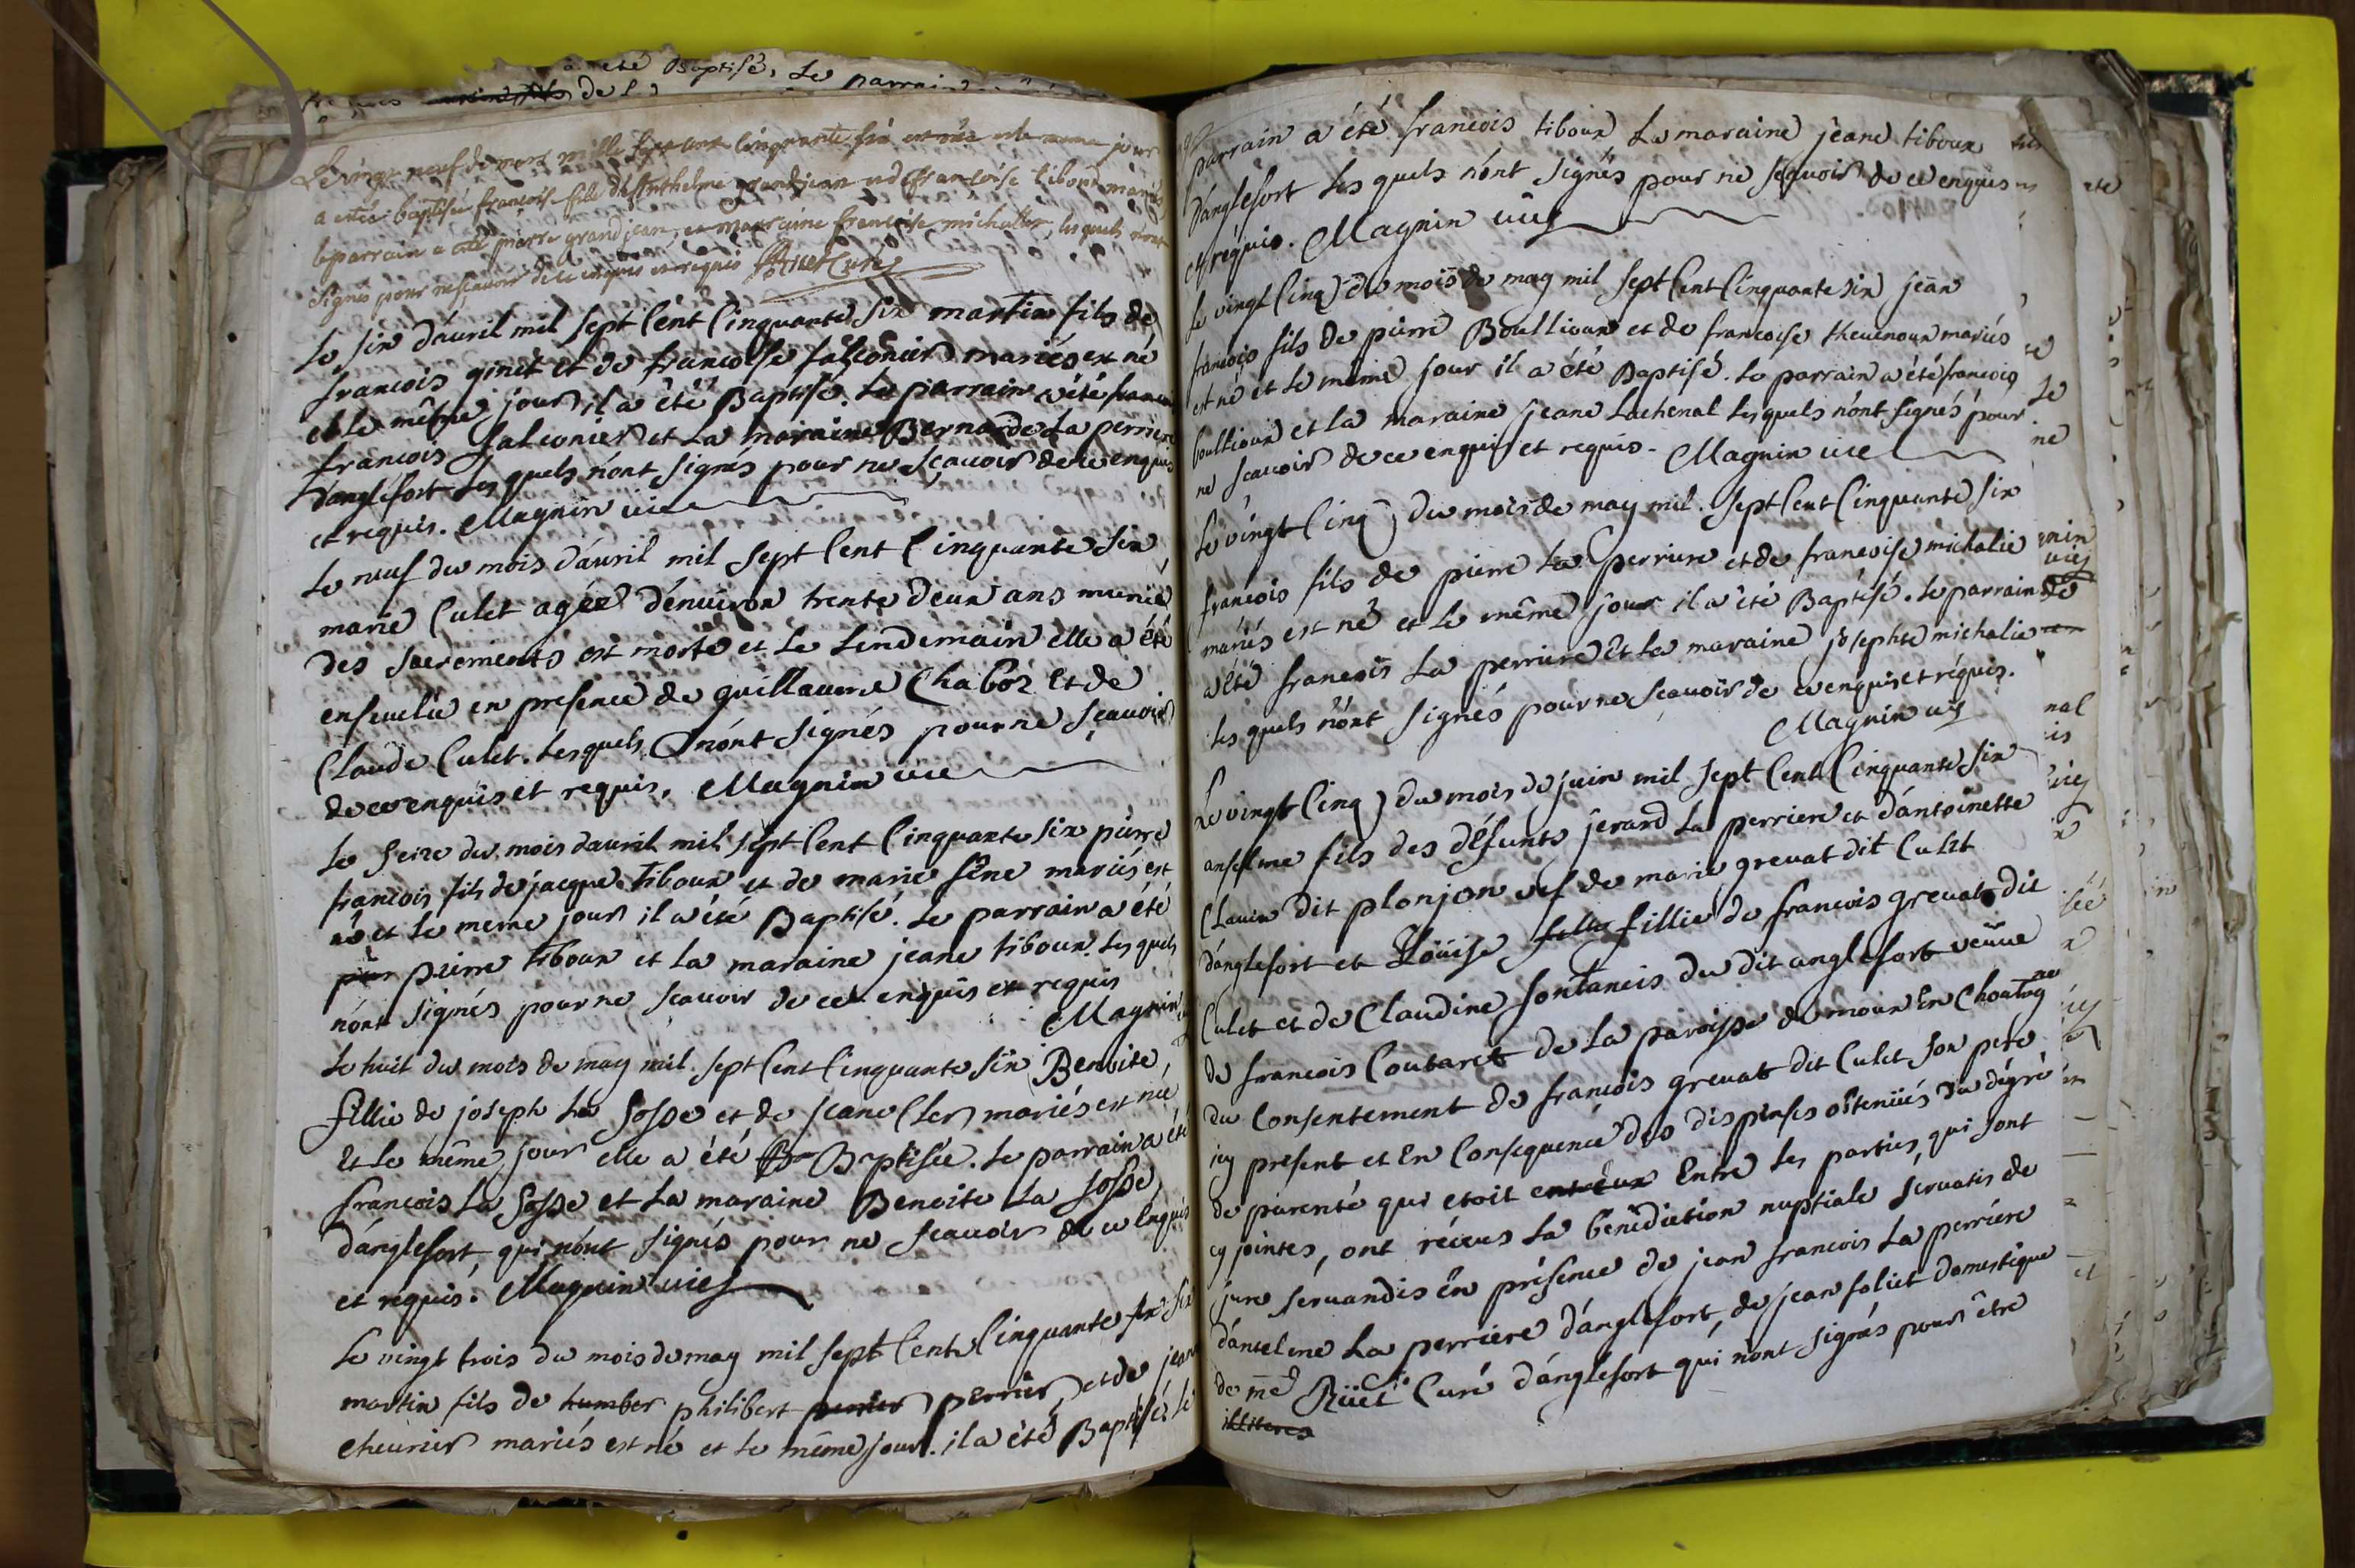 à été Baptisé, Le parrain
de
Le vingt neuf de mars mille sept cent cinquante six est née et le meme jour
a estée baptisée françoise fille d'Anthelme grandjean et de françoise tiboud mariés
le parrain a été pierre grandjean, et marraine françoise michallet, lesquels n'ont
signés pour ne sçavoir de ce enquis et requis Rivet Curé
Le six d'avril mil sept Cent Cinquante six martin fils de
francois ginet et de francoise falconier mariés est né
et le même jour il a été Baptisé. Le parrain a été
francois falconier et La maraine Bernarde La perriere
d'anglefort Lesquels n'ont signés pour ne sçavoir de ce enquis
et requis. Magnin vic
Le neuf du mois d'avril mil sept Cent Cinquante six
marie Culet agée d'énuiron trente deux ans munie
des sacrements est morte et Le Lendemain elle a été
enseuelie en presence de guillaume Chaboz Et de
Claude Culet. Lesquels n'ont signés pour ne sçauoir
de ce enquis et requis. Magnin vic
Le seize du mois d'avril mil sept Cent Cinquante six pierre
francois fils de jacque tiboux et de marie sêne mariés est
né et Le meme jour il a été Baptisé. Le parrain a été
pier pierre tiboux et La maraine jeane tiboux. Lesquels
n'ont signés pour ne scauoir de ce enquis et requis
Magnin
Le huit du mois de may mil sept Cent Cinquante six Benoite
fillie de joseph La fosse et de jeane Cler mariés est née
Et Le même jour elle a été Ba Baptisée. Le parrain a été
francois La fosse et La maraine Benoite La fosse
d'anglefort, qui n'ont signés pour ne scauoir de ce Enquis
et requis. Magnin vic
Le vingt trois du mois de may mil sept Cent Cinquante six six
martin fils de humber philibert perrier perrier, et de jeane
cheurier mariés est né et Le même jour il a été Baptisé, Le
parrain a été francois tiboux La maraine jeane tiboux
d'anglefort Lesquels n'ont signés pour ne sçauoir de ce enquis
et requis. Magnin vic
Le vingt Cinq du mois de may mil sept Cent Cinquante six jean
francois fils de pierre Boullioux et de francoise theuenoux mariés
est né et Le même jour il a été Baptisé. Le parrain a été francois
boullioux et la maraine jeane Lachenal Lesquels n'ont signés pour
ne scauoir de ce enquis et requis. Magnin vic
Le vingt Cinq du mois de may mil sept Cent Cinquante six
francois fils de pierre La perriere et de francoise michalié
mariés est né et Le même jour il a été Baptisé. Le parrain
a été francois La perriere Et La maraine josephte michalié
Lesquels n'ont signés pour ne scauoir de ce enquis et réquis.
Magnin vic
Le vingt Cinq du mois de juin mil sept Cent Cinquante six
anselme fils des défunts jerard La perriere et d'antoinette
Clavin dit plonjon vef de marie greuat dit Culet
d'anglefort et Loüise felle fillie de francois greuat dit
Culet et de Claudine fontaneis du dit anglefort veüue
de francois Coutaret de La paroisse de moux En Choutagne
du Consentement de francois greuat dit Culet son pere
icy présent et En Consequence des dispenses obtenües du dégré
de parenté qui etoit entreux Entre Les parties, qui sont
cy jointes, ont récieus La bénédiction nuptiale seruatis de
jure seruandis En présence de jean francois La perriére
d'antelme La perriere d'anglefort, de jean foliet domestique
de mē Rüet Curé d'anglefort qui n'ont signés pour être
illiteres